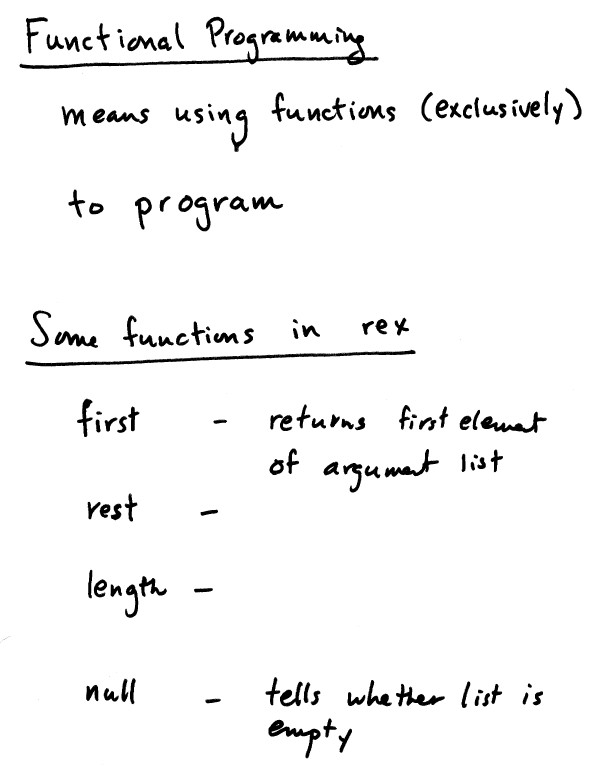 Functional Programming
means using functions (exclusively)
to program
Some functions in rex
first - returns first element
of argument list
rest -
length -
null - tells whether list is
empty